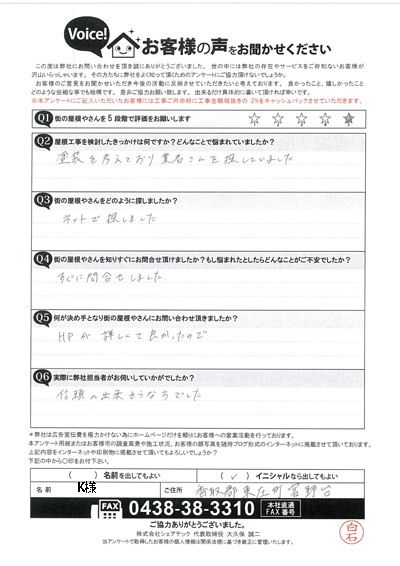 Voice!
お客様の声をお聞かせください
この度は弊社にお問い合わせを頂き誠にありがとうございました。世の中には弊社の存在やサービスをご存知ないお客様が
沢山いらっしゃいます。その方たちに弊社をよく知って頂くためのアンケートにご協力頂けないでしょうか。
お客様のご意見をお聞かせいただき今後の活動に反映させていただきたいと考えております。良かったこと、嬉しかったこと
どのような些細な事でも結構です。是非ご協力お願い致します。出来るだけ具体的に書いて頂ければ幸いです。
※本アンケートにご記入いただいたお客様には工事ご用命時に工事金額税抜きの 2%をキャッシュバックさせていただきます。
Q1 街の屋根やさんを5段階で評価をお願いします ☆ ☆ ☆ ☆ ☆
Q2 屋根工事を検討したきっかけは何ですか?どんなことで悩まれていましたか?
塗装を考えており業者さんを探していました
Q3 街の屋根やさんをどのように探しましたか?
ネットで探しました
Q4 街の屋根やさんを知りすぐにお問合せ頂けましたか?もし悩まれたとしたらどんなことがご不安でしたか?
すぐに問合せしました
Q5 何が決め手となり街の屋根やさんにお問い合わせ頂きましたか?
HPが詳しくて良かったので
Q6 実際に弊社担当者がお伺いしていかがでしたか?
信頼の出来そうな方でした
*弊社は広告宣伝費を極力かけない為にホームページだけを頼りにお客様への営業活動を行っております。
本アンケート用紙またはお客様宅の調査風景や施工状況、お客様の顔写真を随時ブログ形式のインターネットに掲載させて頂いております。
上記内容をインターネットや印刷物に掲載させて頂いてもよろしいでしょうか?
下記の中から○印をお付下さい。
( ) 名前を出してもよい ( ✓ ) イニシャルなら出してもよい
名前 K様 ご住所 香取郡東庄町宮野台
FAX 0438-38-3310 本社直通 FAX番号
ご協力ありがとうございました。
株式会社シェアテック 代表取締役 大久保 誠二
当アンケートで取得したお客様の個人情報は関係法規に基づき厳正に管理いたします。
白石